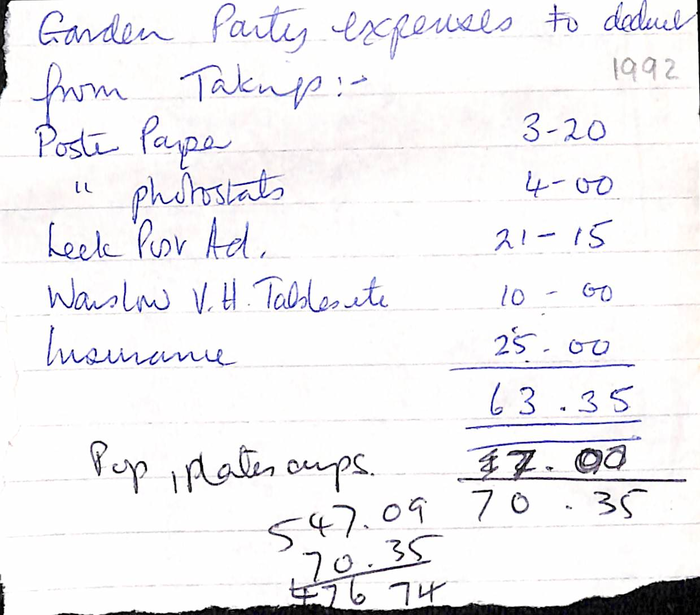 Garden Party expenses to deduct
from Takings:-
1992
Poster Paper 3-20
" photostats 4-00
Leek Post Ad. 21-15
Warslow V.H. Tables etc 10-00
Insurance 25.00
63.35
Pop, plates cups. 7.00
70.35
547.09
70.35
476 74